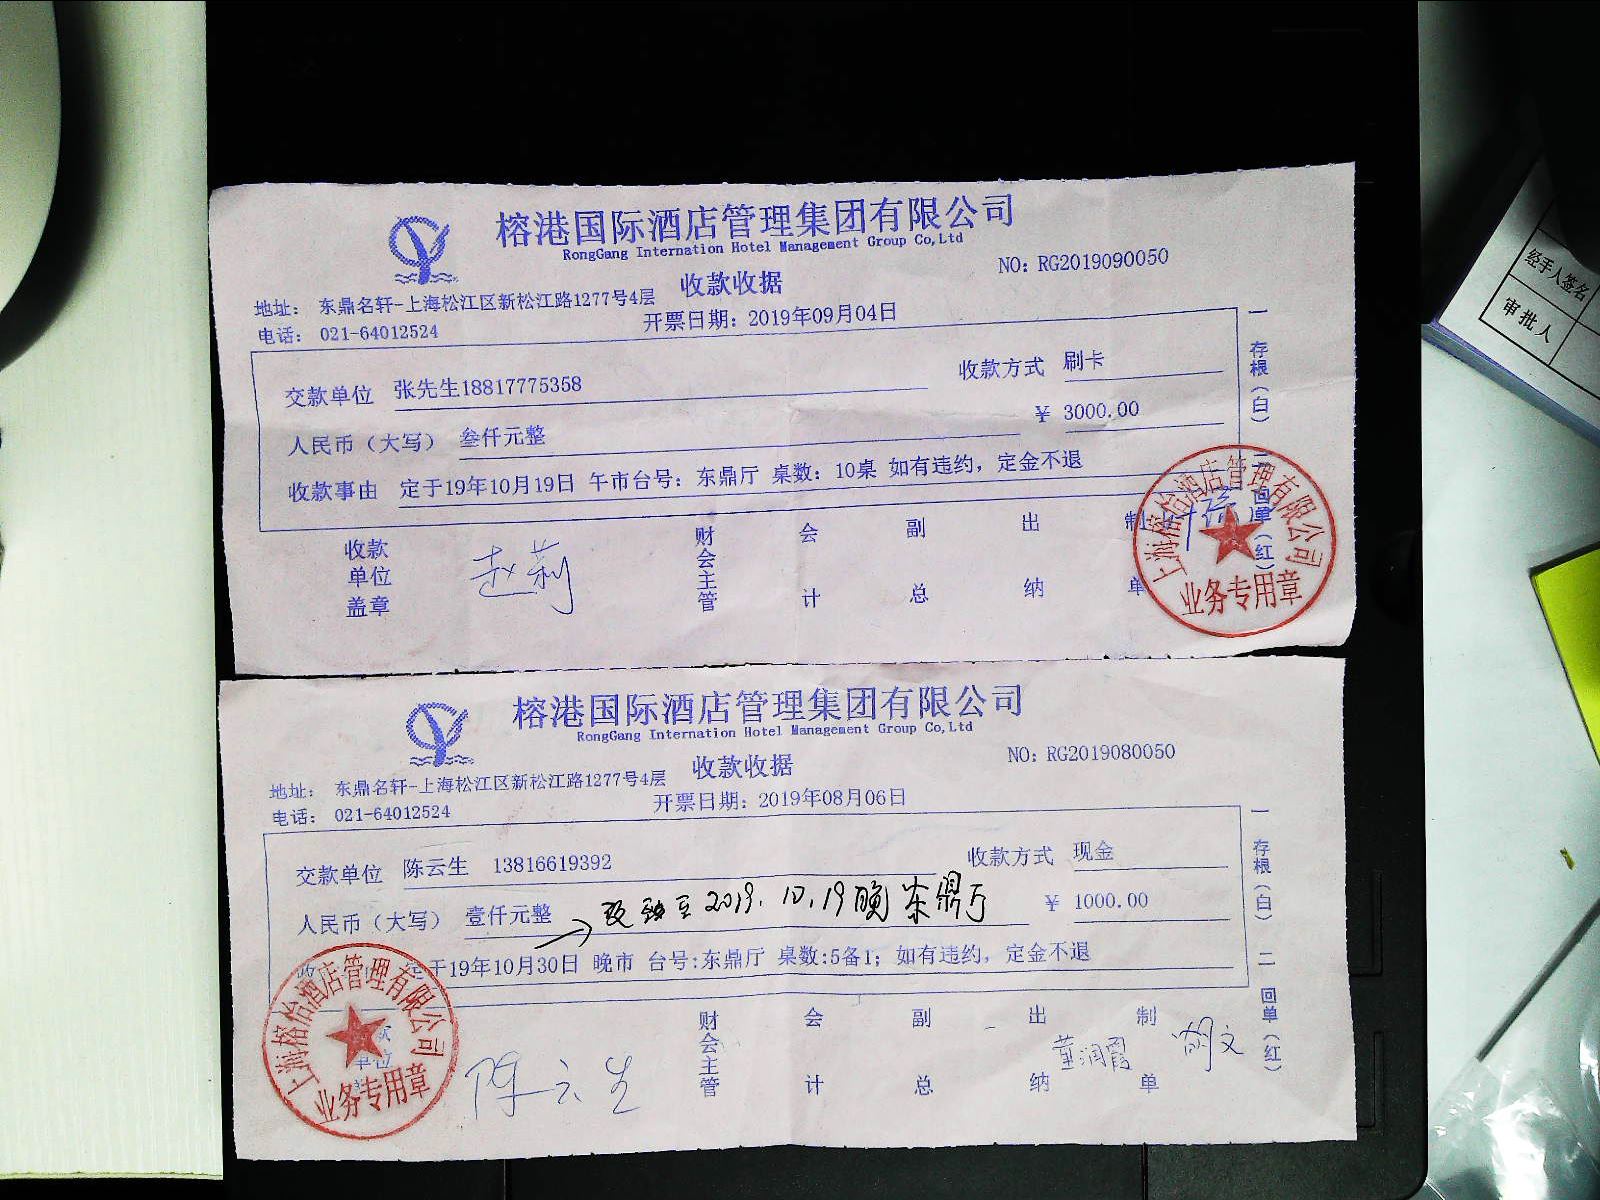 榕港国际酒店管理集团有限公司
RongGang Internation Hotel Management Group Co,Ltd
NO: RG2019090050
收款收据
地址： 东鼎名轩-上海松江区新松江路1277号4层
电话： 021-64012524
开票日期：2019年09月04日
交款单位 张先生18817775358
收款方式 刷卡
人民币（大写） 叁仟元整
¥ 3000.00
收款事由 定于19年10月19日 午市台号：东鼎厅 桌数：10桌 如有违约，定金不退
一存根（白） 二回单（红）
收款单位盖章
赵莉
财会主管
会计
副总
出纳
制单
上海榕怡酒店管理有限公司
业务专用章
榕港国际酒店管理集团有限公司
RongGang Internation Hotel Management Group Co,Ltd
NO: RG2019080050
收款收据
地址： 东鼎名轩-上海松江区新松江路1277号4层
电话： 021-64012524
开票日期：2019年08月06日
交款单位 陈云生 13816619392
收款方式 现金
人民币（大写） 壹仟元整
至2019.10.19晚 东鼎厅
¥ 1000.00
定于19年10月30日 晚市 台号:东鼎厅 桌数:5备1；如有违约，定金不退
一存根（白） 二回单（红）
款单位
陈云生
财会主管
会计
副总
出纳
董润霞
制单
胡文
上海榕怡酒店管理有限公司
业务专用章
经手人签名
审批人